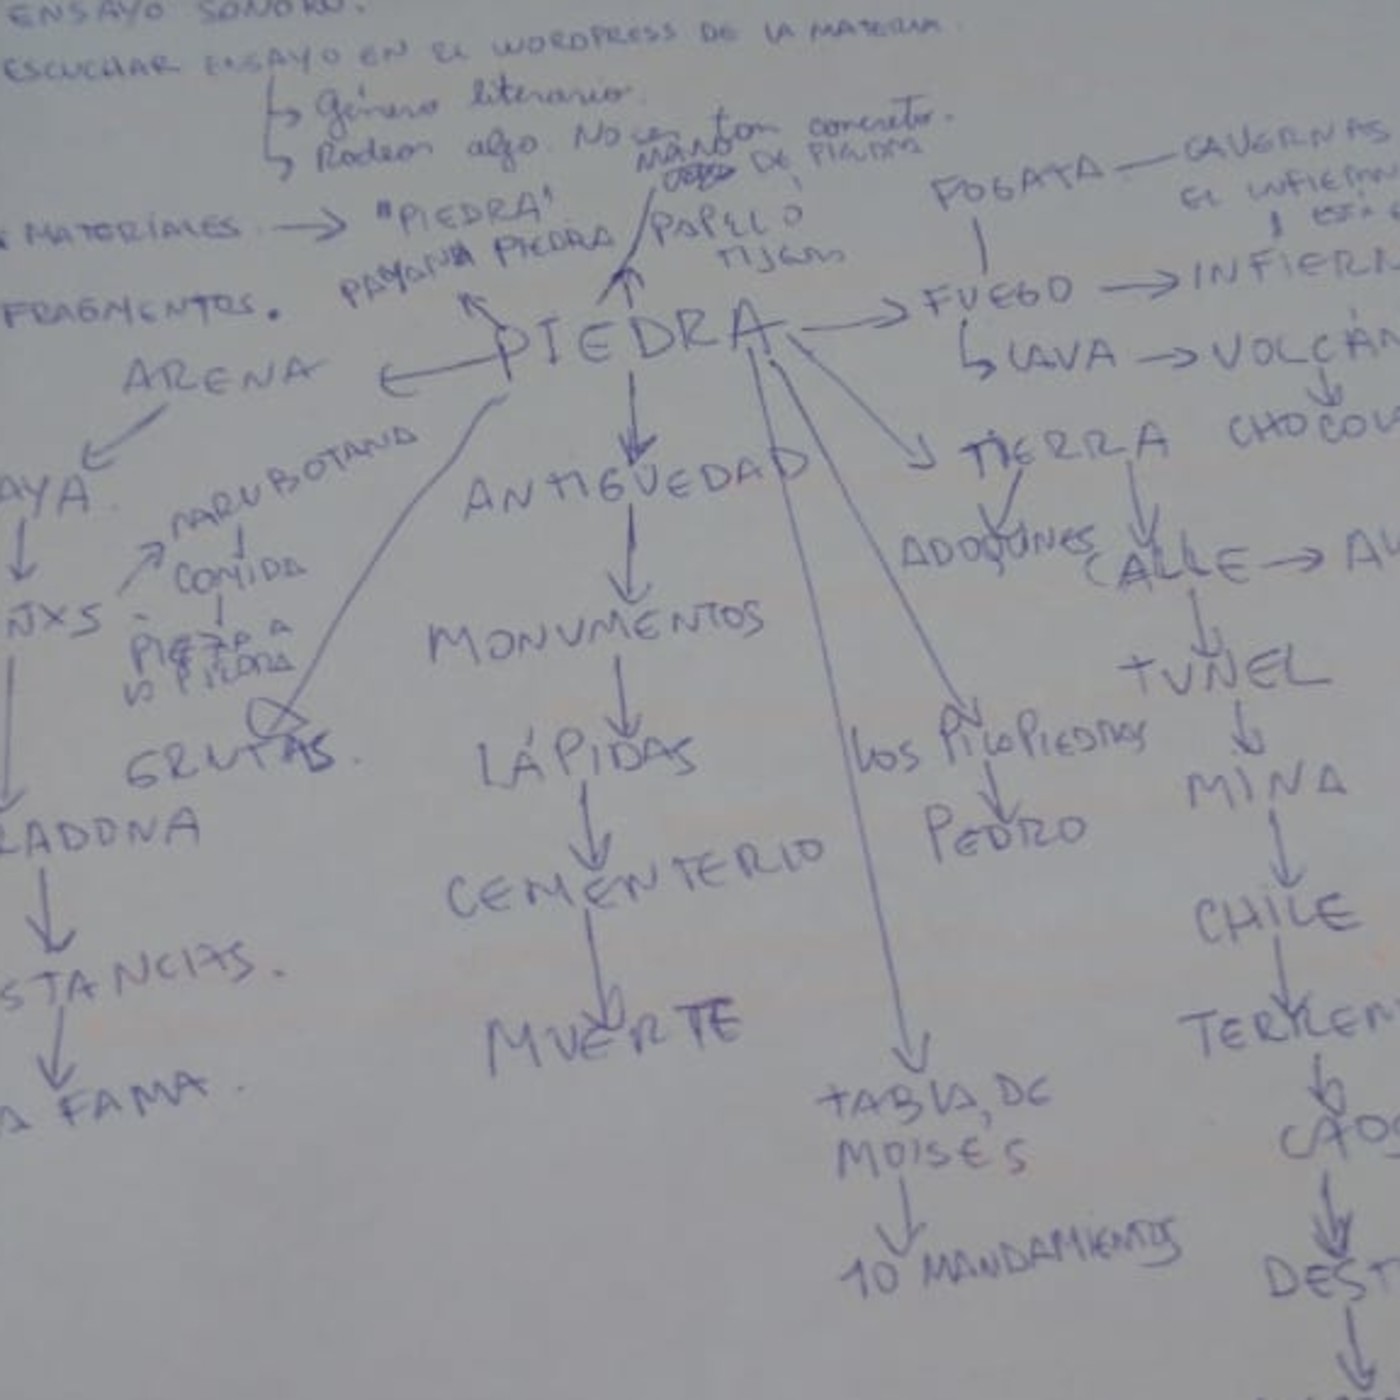 ENSAYO SONORO.
ESCUCHAR ENSAYO EN EL WORDPRESS DE LA MATERIA.
Género literario.
Rodear algo. No es tan concreto.
MANO DE PIEDRA
MATERIALES → "PIEDRA"
PAYANA PIEDRA
PAPEL O
TIJERA
FOGATA — CAVERNAS
EL INFIERN
FRAGMENTOS.
PIEDRA
FUEGO → INFIERN
LAVA → VOLCÁN
CHOCOL
ARENA
TIERRA
AYA.
NARUBOTAND
ANTIGUEDAD
ADOQUINES
CALLE → AV
COMIDA
NXS
MONUMENTOS
TUNEL
GRUTAS.
LÁPIDAS
LOS PICAPIEDRAS
MINA
LADONA
PEDRO
CEMENTERIO
CHILE
STANCIAS.
MUERTE
TERREM
A FAMA.
TABLA DE
MOISÉS
CAOS
10 MANDAMIENTOS
DEST